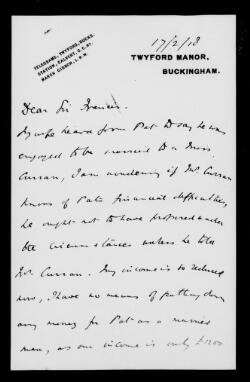 TELEGRAMS, TWYFORD, BUCKS.
STATION, CALVERT, G.C.RY.
17/2/18
TWYFORD MANOR,
BUCKINGHAM.
Dear Sir Francis.
My wife heard from Pat D say he was
engaged to be married to a Miss
Curran, I am wondering if Mr Curran
knows of Pats financial difficulties,
he ought not to have proposed under
the circumstances unless he told
Mr Curran. My income is so reduced
now, I have no means of putting down
any money for Pat as a married
man, as our income is only £1200